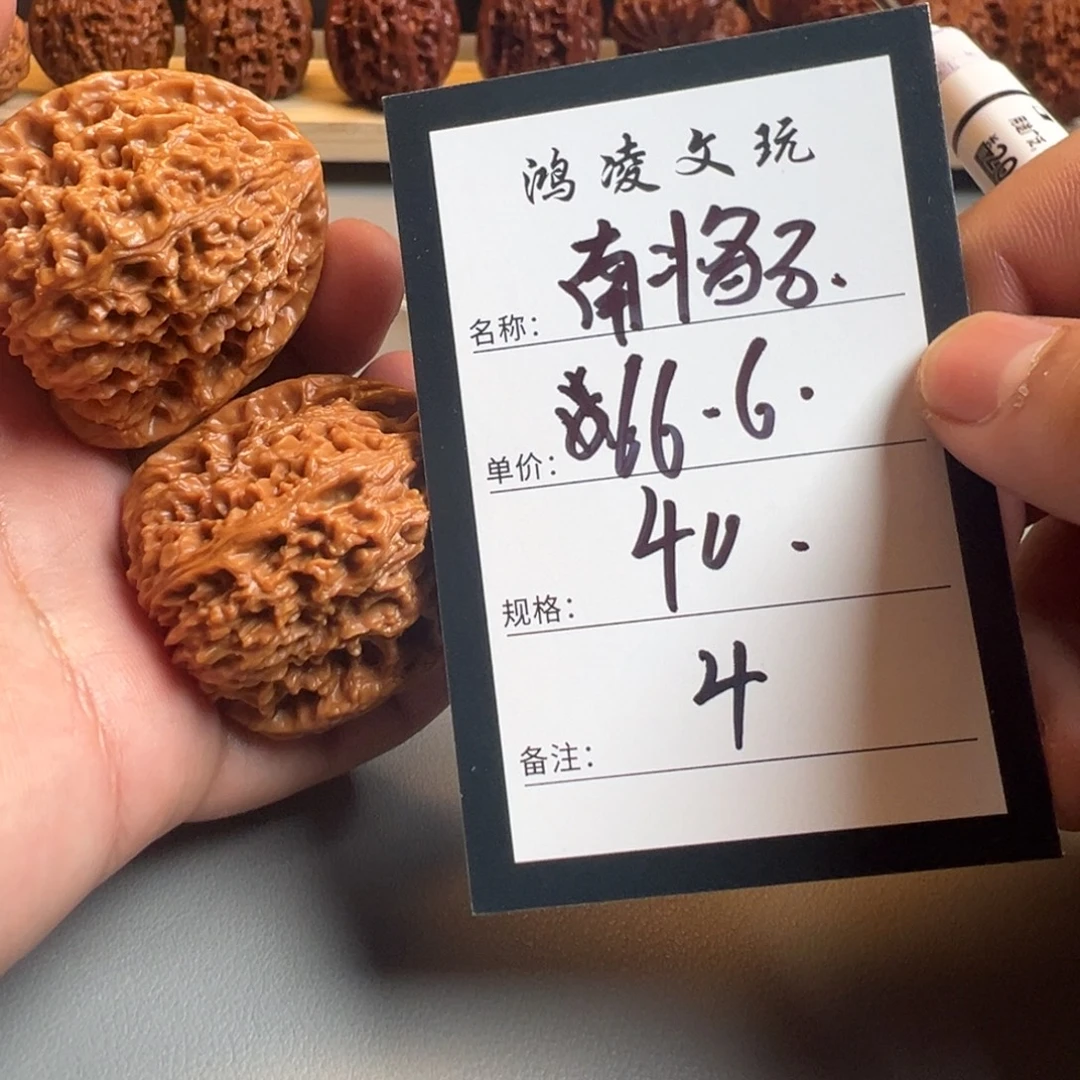 鸿凌文玩
名称： 南将石.
单价： 66.6.
规格： 40.
备注： 4